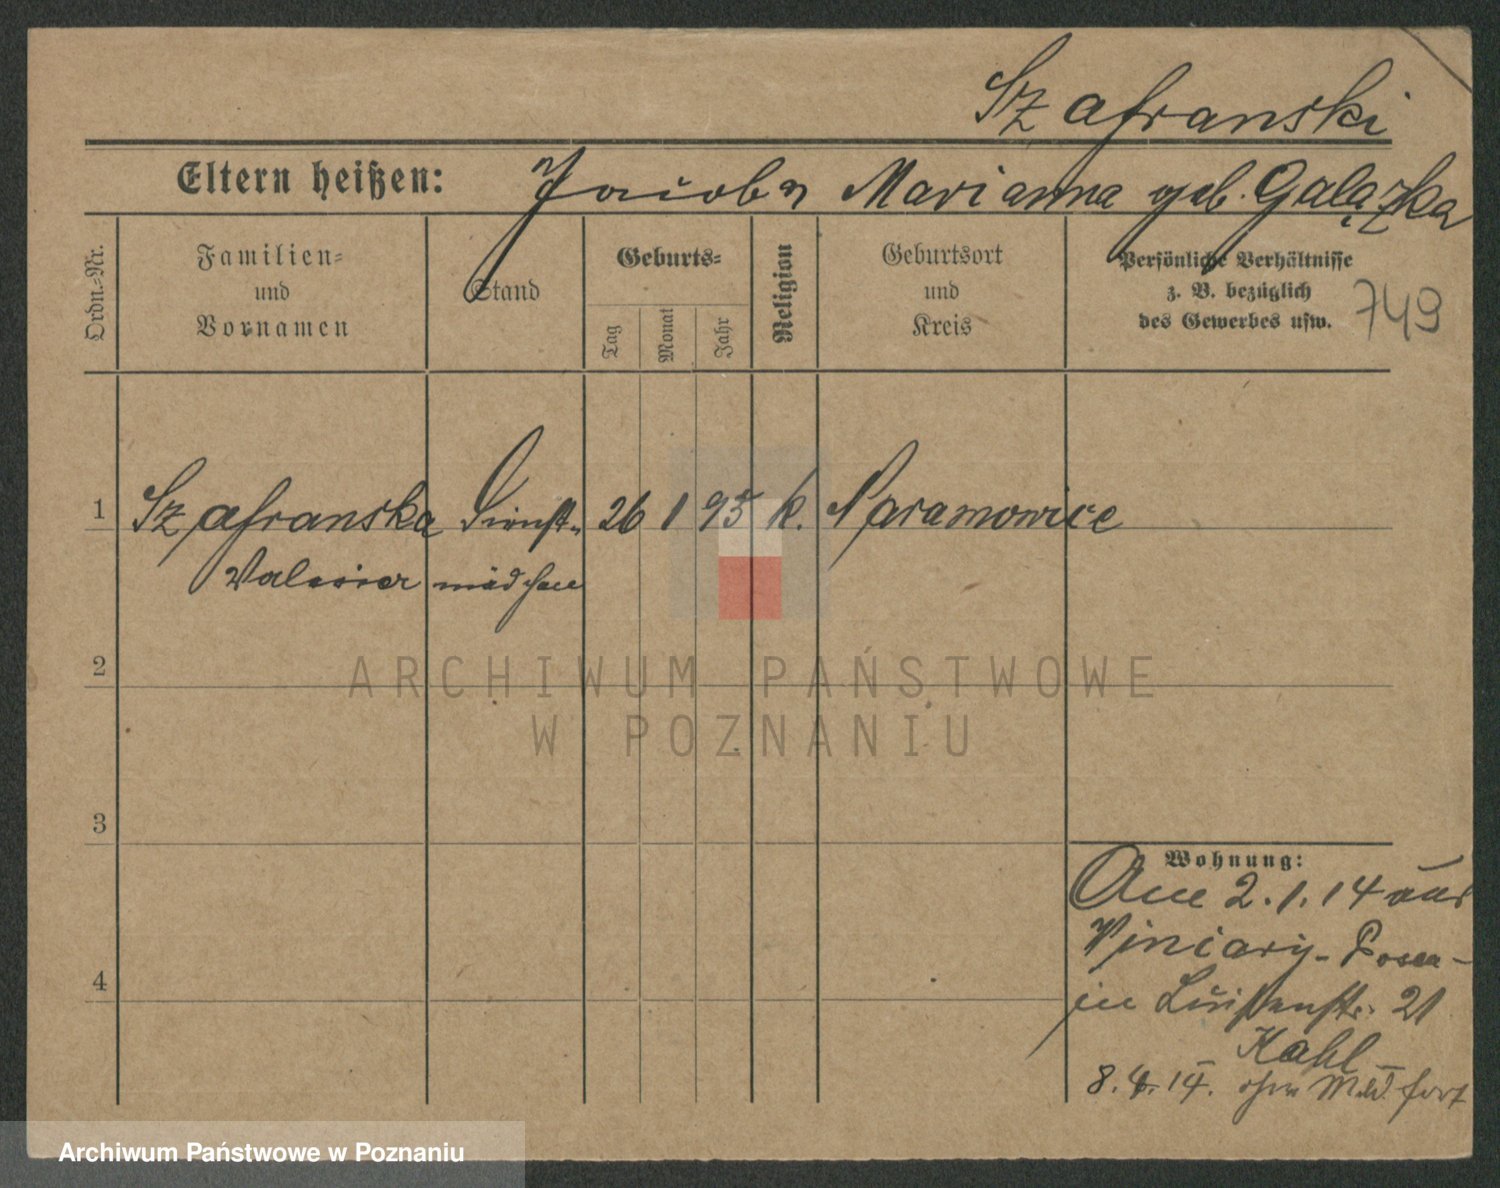 Szafranski
Eltern heißen: Jacob u Marianna geb. Galązka
Ordn.-Nr.
Familien-
und
Vornamen
Stand
Geburts-
Tag
Monat
Jahr
Religion
Geburtsort
und
Kreis
Persönliche Verhältnisse
z. B. bezüglich
des Gewerbes usw.
749
1 Szafranska Dienst- 26 1 95 k. Naramowice
mädchen
2
3
4
Wohnung:
2.1.14 aus
Viniary - Posen
in Luisenstr. 21
Kahl
8.4.14. ohne Meld. fort
ARCHIWUM PAŃSTWOWE
W POZNANIU
Archiwum Państwowe w Poznaniu